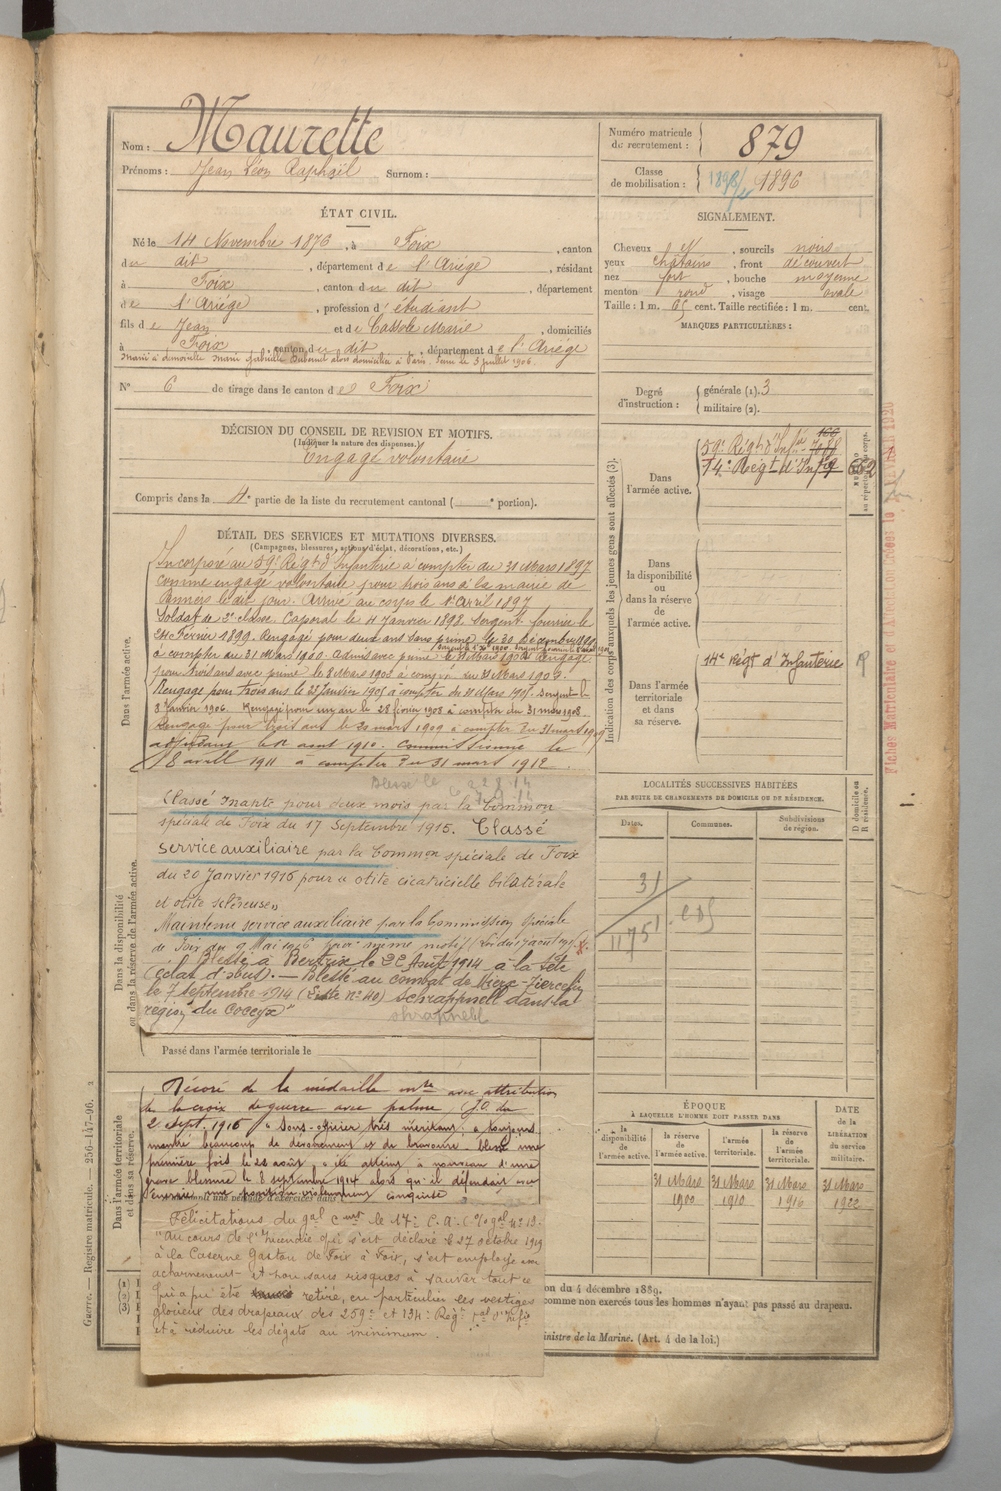 Nom : Maurette
Prénoms : Jean Léon Raphaël Surnom :
Numéro matricule
de recrutement : 879
Classe
de mobilisation : 1898/4 1896
ÉTAT CIVIL.
Né le 14 Novembre 1876, à Foix, canton
du dit, département de l'Ariége, résidant
à Foix, canton du dit, département
de l'Ariége, profession d'étudiant
fils de Jean et de Cassole Marie, domiciliés
à Foix, canton du dit, département de l'Ariége
Marié à demoiselle Marie Gabrielle alors domiciliée à Paris, Seine le 3 juillet 1906.
N° 6 de tirage dans le canton de Foix
SIGNALEMENT.
Cheveux N, sourcils noirs
yeux châtains, front découvert
nez fort, bouche moyenne
menton rond, visage ovale
Taille : 1 m. 65 cent. Taille rectifiée : 1 m. cent.
MARQUES PARTICULIÈRES :
Degré
d'instruction :
générale (1). 3
militaire (2).
DÉCISION DU CONSEIL DE REVISION ET MOTIFS.
(Indiquer la nature des dispenses.)
Engagé volontaire
Compris dans la 4e partie de la liste du recrutement cantonal ( e portion).
DÉTAIL DES SERVICES ET MUTATIONS DIVERSES.
(Campagnes, blessures, actions d'éclat, décorations, etc.)
Dans l'armée active.
Incorporé au 59e Régt d'Infanterie à compter du 31 Mars 1897
comme engagé volontaire pour trois ans à la mairie de
Pamiers le dit jour. Arrivé au corps le 1er Avril 1897
Soldat de 2e classe. Caporal le 4 Janvier 1898. Sergent fourrier le
24 Février 1899. Rengagé pour deux ans sans prime le 20 Décembre 1899
à compter du 31 Mars 1900. Admis avec prime le 31 Mars 1902 Rengagé
pour trois ans avec prime le 8 Mars 1902 à compter du 31 Mars 1902.
Rengagé pour trois ans le 25 Janvier 1905 à compter du 31 Mars 1905. Sergent le
8 Janvier 1906. Rengagé pour un an le 28 février 1908 à compter du 31 mars 1908
Rengagé pour trois ans le 20 mars 1909 à compter du 31 mars 1909
adjudant le 1er aout 1910. Commissionné le
18 avril 1911 à compter du 31 mars 1912.
Blessé le 22.8.14
7.9.14
Classé Inapte pour deux mois par la Common
spéciale de Foix du 17 Septembre 1915. Classé
service auxiliaire par la Common spéciale de Foix
du 20 Janvier 1916 pour « otite cicatricielle bilatérale
et otite scléreuse »
Maintenu service auxiliaire par la Commission spéciale
de Foix du 9 Mai 1916 pour même motif
Blessé à Bertrix le 22 Août 1914 à la tête
(éclat d'obus). — Blessé au combat de
le 7 septembre 1914 (Liste n° 40) Schrappnell dans la
région du Coccyx"
shrapnell
Dans la disponibilité
ou dans la réserve de l'armée active.
Passé dans l'armée territoriale le
Dans l'armée territoriale
et dans sa réserve.
Décoré de la médaille mre avec attribution
de la croix de guerre avec palme, J.O. du
2 Sept. 1916 "Sous-officier très méritant, a toujours
montré beaucoup de dévouement et de bravoure. blessé une
première fois le 22 août, a été atteint à nouveau d'une
grave blessure le 8 septembre 1914 alors qu'il défendait
une position violemment conquise
Félicitations du gal Cmt le 17e C.A.
"Au cours de l'Incendie qui s'est déclaré le 27 octobre 1919
à la Caserne Gaston de Foix à Foix, s'est employé avec
acharnement et non sans risques à sauver tout ce
qui a pu être retiré, en particulier les vestiges
glorieux des drapeaux des 259e et 134e Régt d'Infie
et à réduire les dégâts au minimum.
Indication des corps auxquels les jeunes gens sont affectés (3).
Dans
l'armée active.
59e Régt d'Infie
14e Régt d'Infie
662
NUMÉRO
au répertoire du corps.
Dans
la disponibilité
ou
dans la réserve
de
l'armée active.
Dans l'armée
territoriale
et dans
sa réserve.
14e Régt d'Infanterie
LOCALITÉS SUCCESSIVES HABITÉES
PAR SUITE DE CHANGEMENTS DE DOMICILE OU DE RÉSIDENCE.
D domicile ou
R résidence.
Dates. Communes. Subdivisions
de région.
31
1175
ÉPOQUE
À LAQUELLE L'HOMME DOIT PASSER DANS
DATE
de la
LIBÉRATION
du service
militaire.
la
disponibilité
de
l'armée active.
la réserve
de
l'armée active.
l'armée
territoriale.
la
réserve
de
l'armée
territoriale.
31 Mars 1900
31 Mars 1910
31 Mars 1916
31 Mars 1922
on du 4 décembre 1889.
comme non exercés tous les hommes n'ayant pas passé au drapeau.
inistre de la Marine. (Art. 4 de la loi.)
(1)
(2)
(3)
Guerre. — Registre matricule. — 256-147-96.